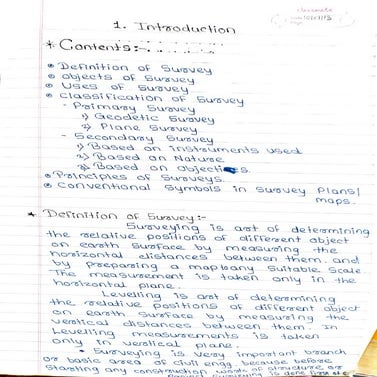 classmate
1. Introduction
* Contents:-
Definition of Survey
objects of Survey
Uses of Survey
Classification of Survey
- Primary Survey
i) Geodetic Survey
ii) Plane Survey
- Secondary Survey
i) Based on instruments used
ii) Based on Nature
iii) Based on objectives.
Principles of Surveys.
Conventional Symbols in Survey Plans/
maps.
* Definition of Survey:-
Surveying is art of determining
the relative positions of different object
on earth surface by measuring the
horizontal distances between them. and
by preparing a map to any Suitable Scale.
The measurement is taken only in the
horizontal plane.
Levelling is art of determining
the relative positions of different object
on earth surface by measuring the
vertical distances between them. In
Levelling measurements is taken
only in vertical plane.
• Surveying is very important branch
or basic area of civil engg. because before
Starting any construction work of structure or
surveying is done first of